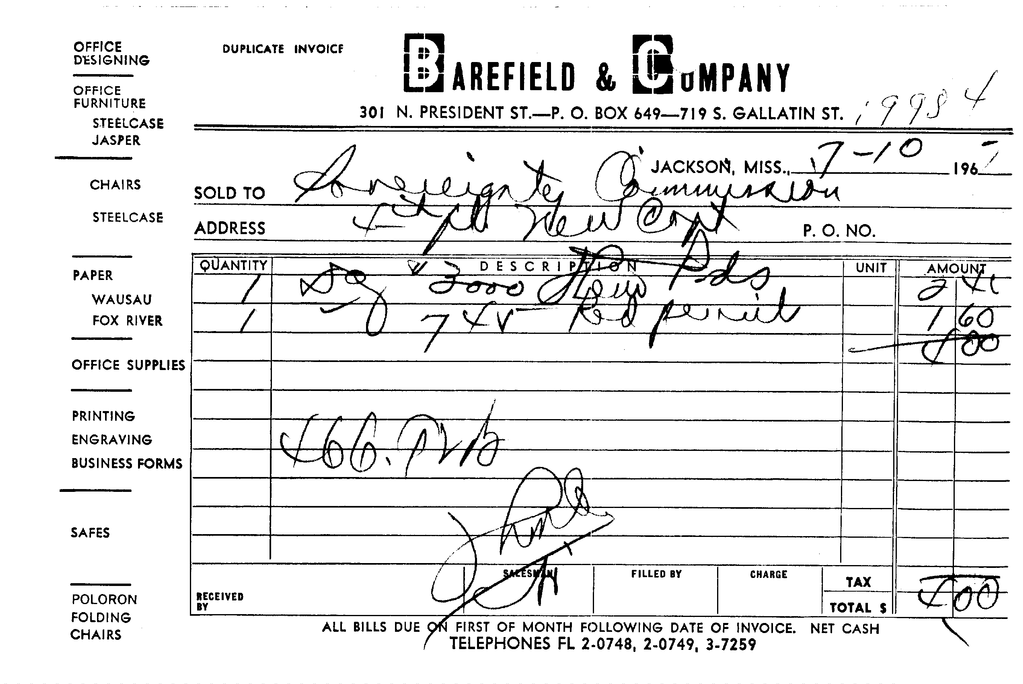 OFFICE DESIGNING
OFFICE FURNITURE
STEELCASE
JASPER
CHAIRS
STEELCASE
PAPER
WAUSAU
FOX RIVER
OFFICE SUPPLIES
PRINTING
ENGRAVING
BUSINESS FORMS
SAFES
POLORON FOLDING CHAIRS
DUPLICATE INVOICE
BAREFIELD & COMPANY
301 N. PRESIDENT ST.—P. O. BOX 649—719 S. GALLATIN ST.
19984
JACKSON, MISS., 7-10 1967
SOLD TO Sovereignty Commission
ADDRESS 4th fl New Capt P. O. NO.
QUANTITY DESCRIPTION UNIT AMOUNT
1 Dz #2000 Pds 2 40
1 Dz 745 Red pencil 1 60
4 00
SALESMAN FILLED BY CHARGE TAX
RECEIVED BY TOTAL $ 4 00
ALL BILLS DUE ON FIRST OF MONTH FOLLOWING DATE OF INVOICE. NET CASH
TELEPHONES FL 2-0748, 2-0749, 3-7259